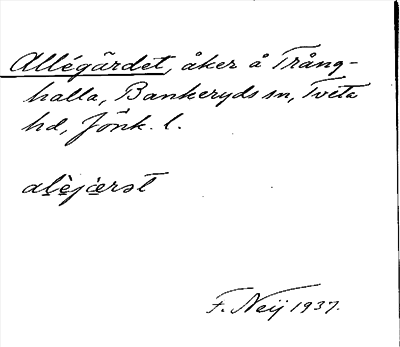 Allégärdet, åker å Trång-
halla, Bankeryds sn, Tveta
hd, Jönk. l.
F. Neij 1937.